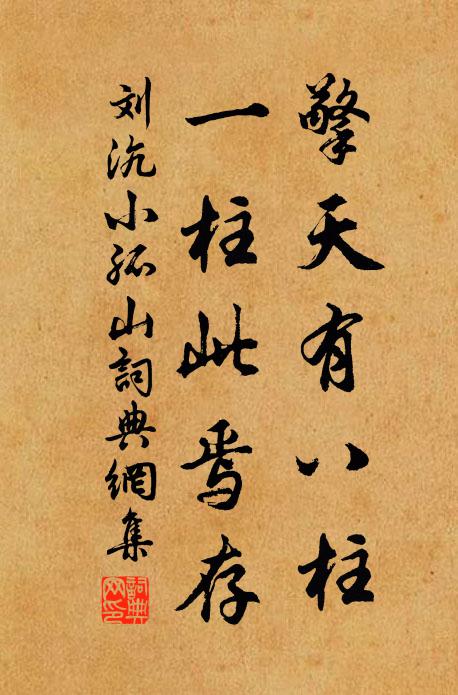 擎天有八柱
一柱此焉存
刘沆小孤山詞典網集
詞典網印